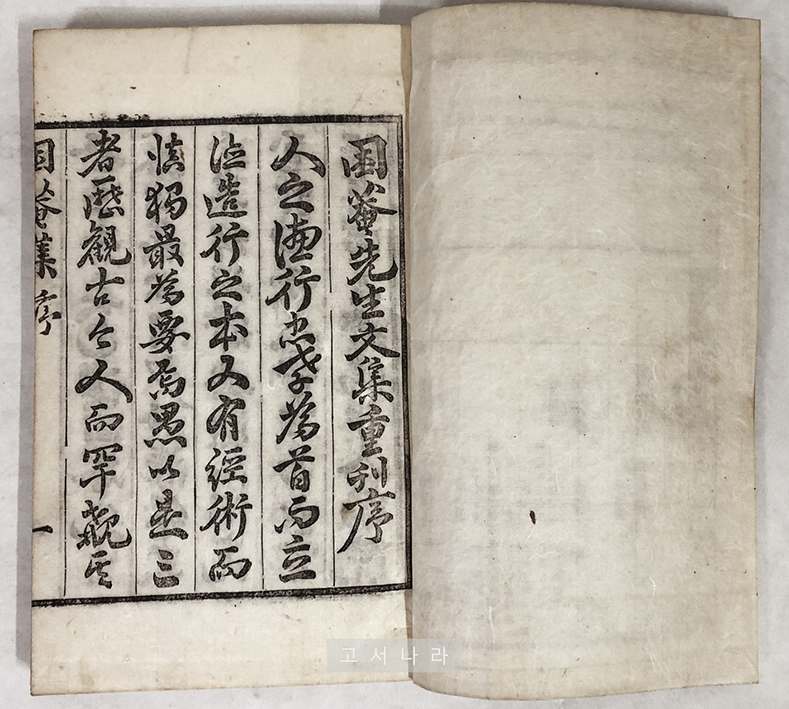 困菴先生文集重刊序
人之德行忠孝為首而立
造行之本又有經術而
慎獨最為要焉愚以是三
者歷觀古今人而罕其
困菴集序
一
고서나라